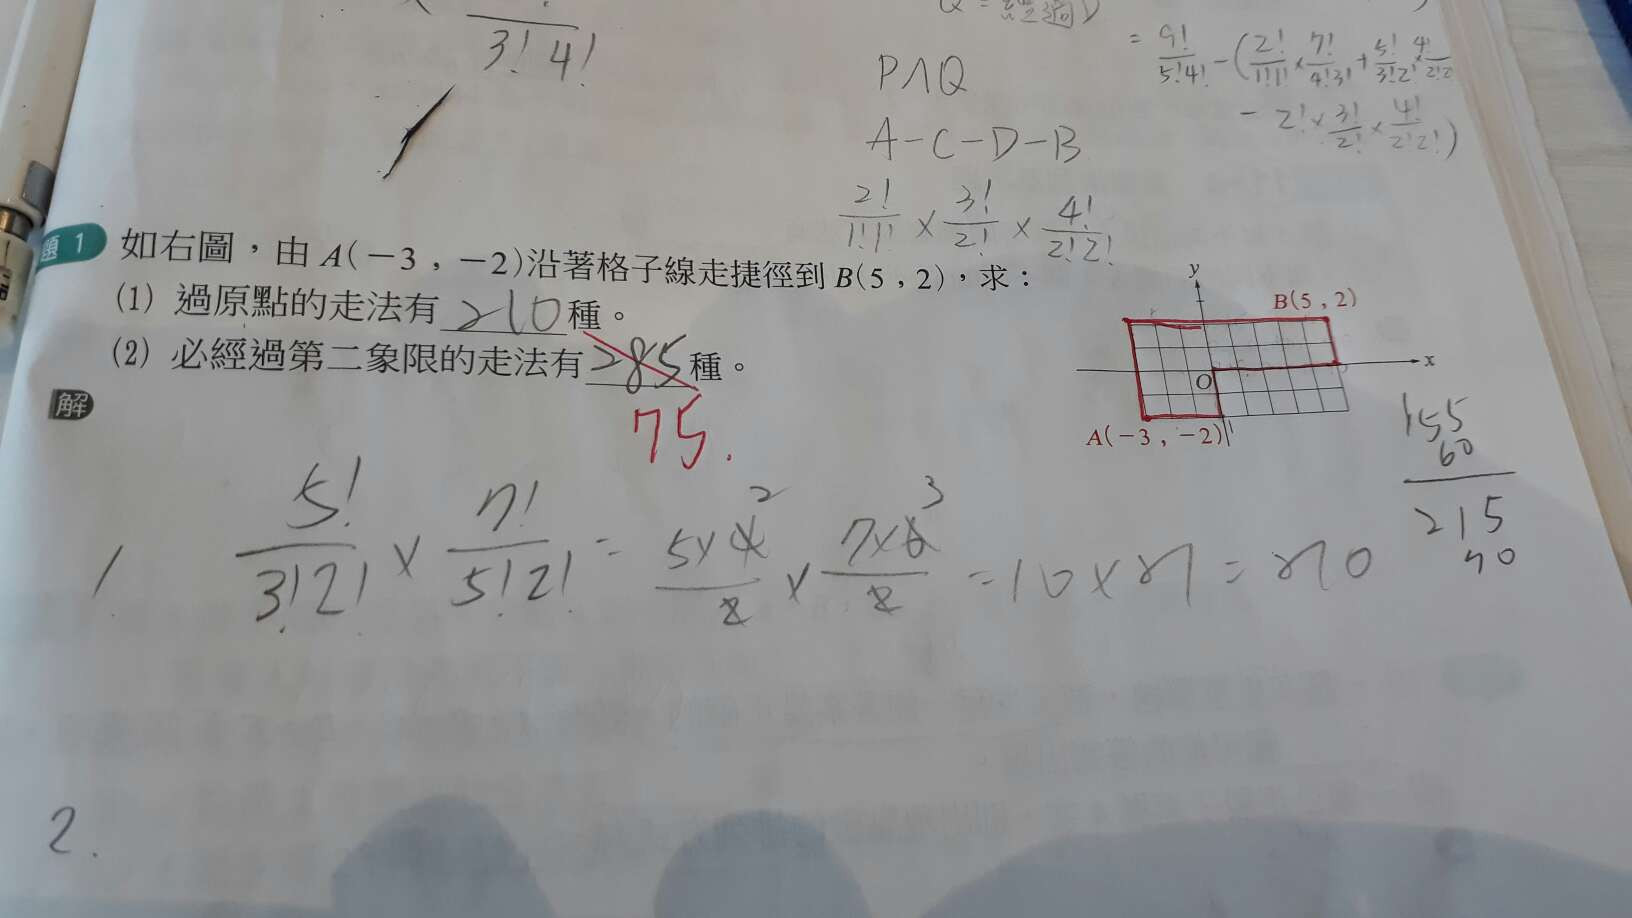 3! 4!
P∧Q
A-C-D-B
2!/1!1! × 3!/2! × 4!/2!2!
= 9!/5!4! - (2!/1!1! × 7!/4!3! + 5!/3!2! × 4!/2!2
- 2! × 3!/2! × 4!/2!2!)
題 1 如右圖，由 A(－3，－2)沿著格子線走捷徑到 B(5，2)，求：
(1) 過原點的走法有 210 種。
(2) 必經過第二象限的走法有 285 種。
75.
解
y
B(5，2)
x
O
A(－3，－2)
155
60
215
70
1. 5!/3!2! × 7!/5!2! = 5×4 2/2 × 7×6 3/2 = 10×21 = 210
2.